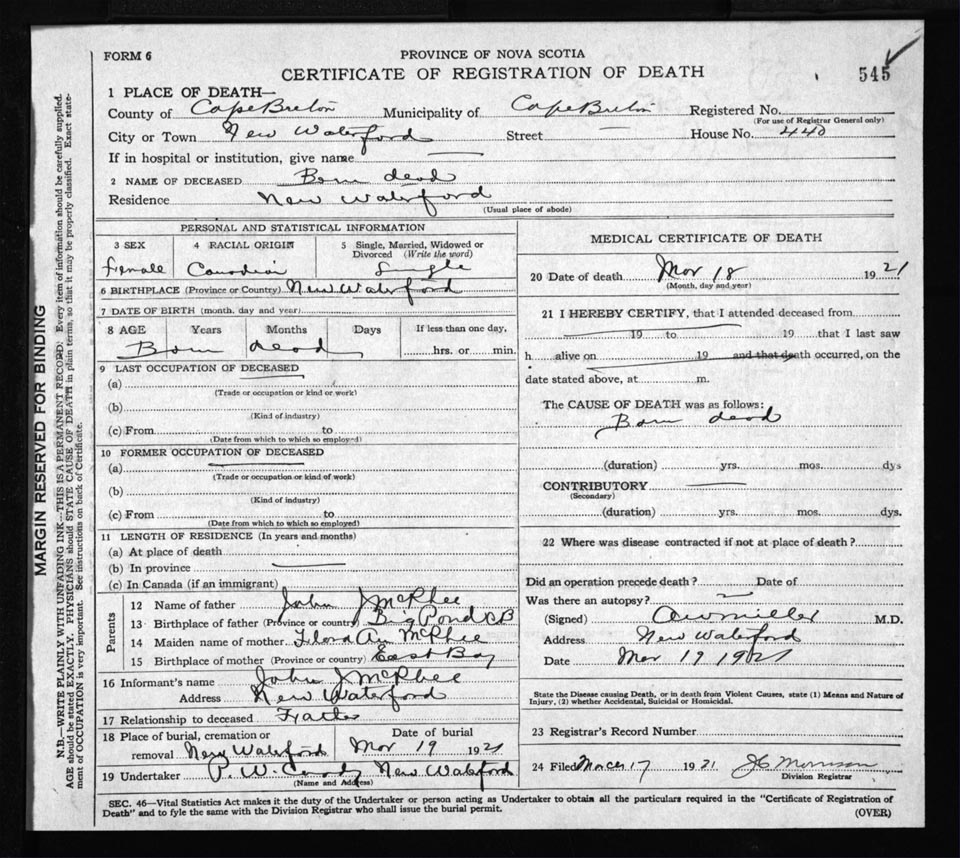 FORM 6
PROVINCE OF NOVA SCOTIA
CERTIFICATE OF REGISTRATION OF DEATH
545
1 PLACE OF DEATH—
County of Cape Breton Municipality of Cape Breton Registered No.
(For use of Registrar General only)
City or Town New Waterford Street — House No. 440
If in hospital or institution, give name —
2 NAME OF DECEASED Born dead
Residence New Waterford
(Usual place of abode)
PERSONAL AND STATISTICAL INFORMATION
3 SEX 4 RACIAL ORIGIN 5 Single, Married, Widowed or
Divorced (Write the word)
Female Canadian Single
6 BIRTHPLACE (Province or Country) New Waterford
7 DATE OF BIRTH (month, day and year)
8 AGE Years Months Days If less than one day,
hrs. or min.
Born dead
9 LAST OCCUPATION OF DECEASED
(a)
(Trade or occupation or kind or work)
(b)
(Kind of industry)
(c) From to
(Date from which to which so employed)
10 FORMER OCCUPATION OF DECEASED
(a)
(Trade or occupation or kind of work)
(b)
(Kind of industry)
(c) From to
(Date from which to which so employed)
11 LENGTH OF RESIDENCE (In years and months)
(a) At place of death
(b) In province —
(c) In Canada (if an immigrant)
Parents
12 Name of father John J McPhee
13 Birthplace of father (Province or country) Big Pond CB
14 Maiden name of mother Flora Ann McPhee
15 Birthplace of mother (Province or country) East Bay
16 Informant's name John J McPhee
Address New Waterford
17 Relationship to deceased Father
18 Place of burial, cremation or Date of burial
removal New Waterford Mar 19 1921
19 Undertaker P. W. New Waterford
(Name and Address)
MEDICAL CERTIFICATE OF DEATH
20 Date of death Mar 18 1921
(Month, day and year)
21 I HEREBY CERTIFY, that I attended deceased from
19 to 19 that I last saw
h alive on 19 and that death occurred, on the
date stated above, at m.
The CAUSE OF DEATH was as follows:
Born dead
(duration) yrs. mos. dys
CONTRIBUTORY —
(Secondary)
(duration) yrs. mos. dys.
22 Where was disease contracted if not at place of death?
Did an operation precede death? Date of
Was there an autopsy?
(Signed) Miller M.D.
Address New Waterford
Date Mar 19 1921
State the Disease causing Death, or in death from Violent Causes, state (1) Means and Nature of
Injury, (2) whether Accidental, Suicidal or Homicidal.
23 Registrar's Record Number
24 Filed March 17 1921 J C Morrison
Division Registrar
SEC. 46—Vital Statistics Act makes it the duty of the Undertaker or person acting as Undertaker to obtain all the particulars required in the "Certificate of Registration of
Death" and to fyle the same with the Division Registrar who shall issue the burial permit.
(OVER)
MARGIN RESERVED FOR BINDING
N.B.—WRITE PLAINLY WITH UNFADING INK—THIS IS A PERMANENT RECORD. Every item of information should be carefully supplied.
AGE should be stated EXACTLY. PHYSICIANS should STATE CAUSE OF DEATH in plain terms, so that it may be properly classified. Exact state-
ment of OCCUPATION is very important. See instructions on back of Certificate.